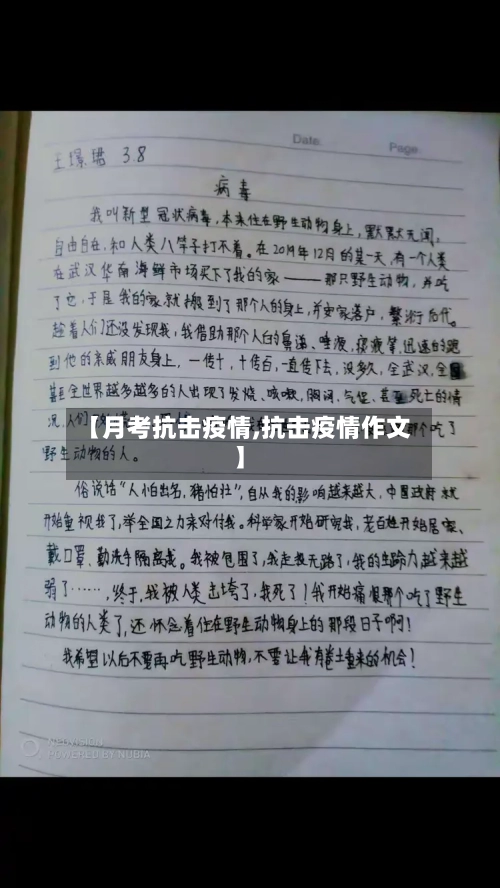 Date
Page
王璟珺 3.8
病毒
我叫新型冠状病毒，本来住在野生动物身上，默默无闻，
自由自在，和人类八竿子打不着。在2019年12月的某一天，有一个人类
在武汉华南海鲜市场买下了我的家——那只野生动物，并吃
了它，于是我的家就搬到了那个人的身上，并安家落户，繁衍后代。
趁着人们还没发现我，我借助那个人的鼻涕、唾液、痰液等，迅速的跑
到他的亲戚朋友身上，一传十，十传百，一直传下去，没多久，全武汉，全国
甚至全世界越多越多的人出现了发烧、咳嗽，胸闷，气促，甚至死亡的情
况，人们
那个吃了
野生动物的人。
【月考抗击疫情,抗击疫情作文
】
俗说话“人怕出名，猪怕壮”，自从我的影响越来越大，中国政府就
开始重视我了，举全国之力来对付我。科学家开始研究我，老百姓开始居家、
戴口罩、勤洗手隔离我。我被包围了，我走投无路了，我的生命力越来越
弱了……，终于，我被人类击垮了，我死了！我开始痛恨那个吃了野生
动物的人类了，还怀念着住在野生动物身上的那段日子啊！
我希望以后不要再吃野生动物，不要让我有卷土重来的机会！
POWERED BY NUBIA